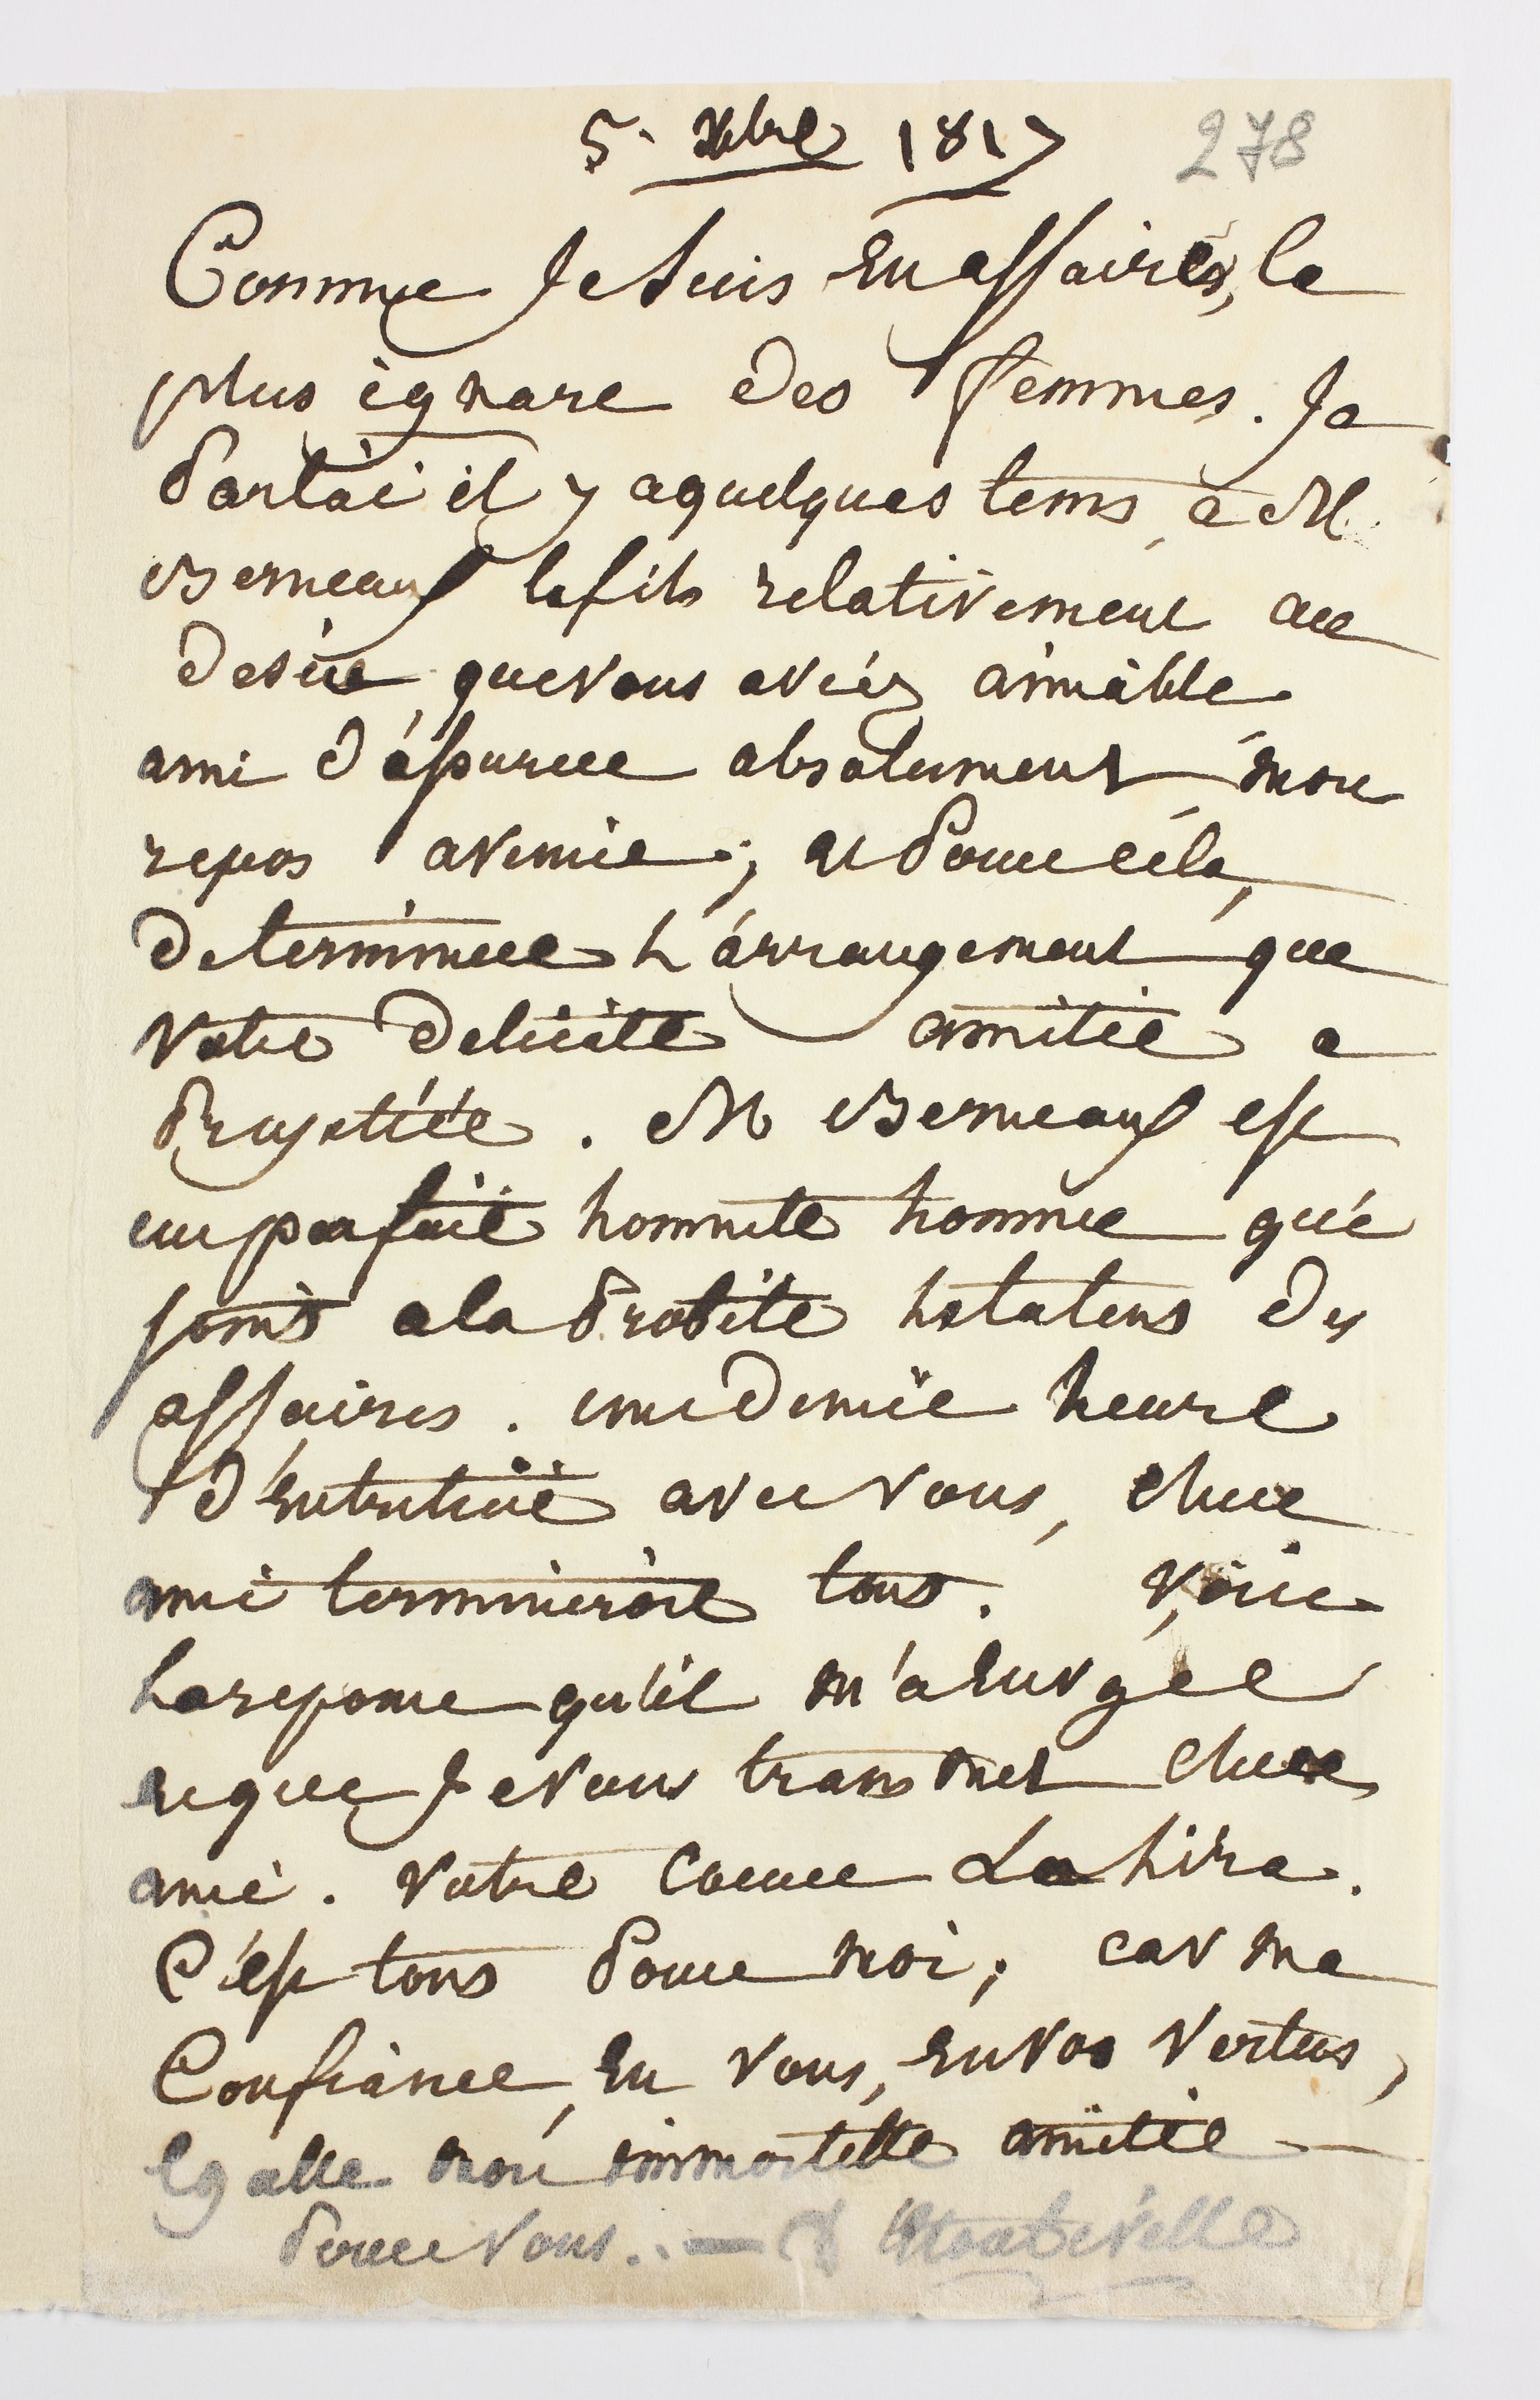 5. Xbre 1817 278
Comme Je suis en affaires, le
plus ignare des femmes. Je
Parlai il y a quelques tems, a M
Berneaux le fils relativement au
desir que vous aviéz aimable
ami d'épurer absolument mon
repos avenir; et Pour céla,
determiner L'arrangement que
votre delicate amitié a
Projettéé. M Berneaux est
un parfait honnete homme qui
joint a la Probité les talens des
affaires. une demie heure
d'entretien avec vous, cher
ami termineroit tout. voici
La reponse qu'il m'a envoyee
et que Je vous transmet cher
ami. votre coeur La Lira.
C'est tout Pour moi; car ma
Confiance, en vous, en vos vertus,
Egalle mon immortelle amitié
Pour vous. —